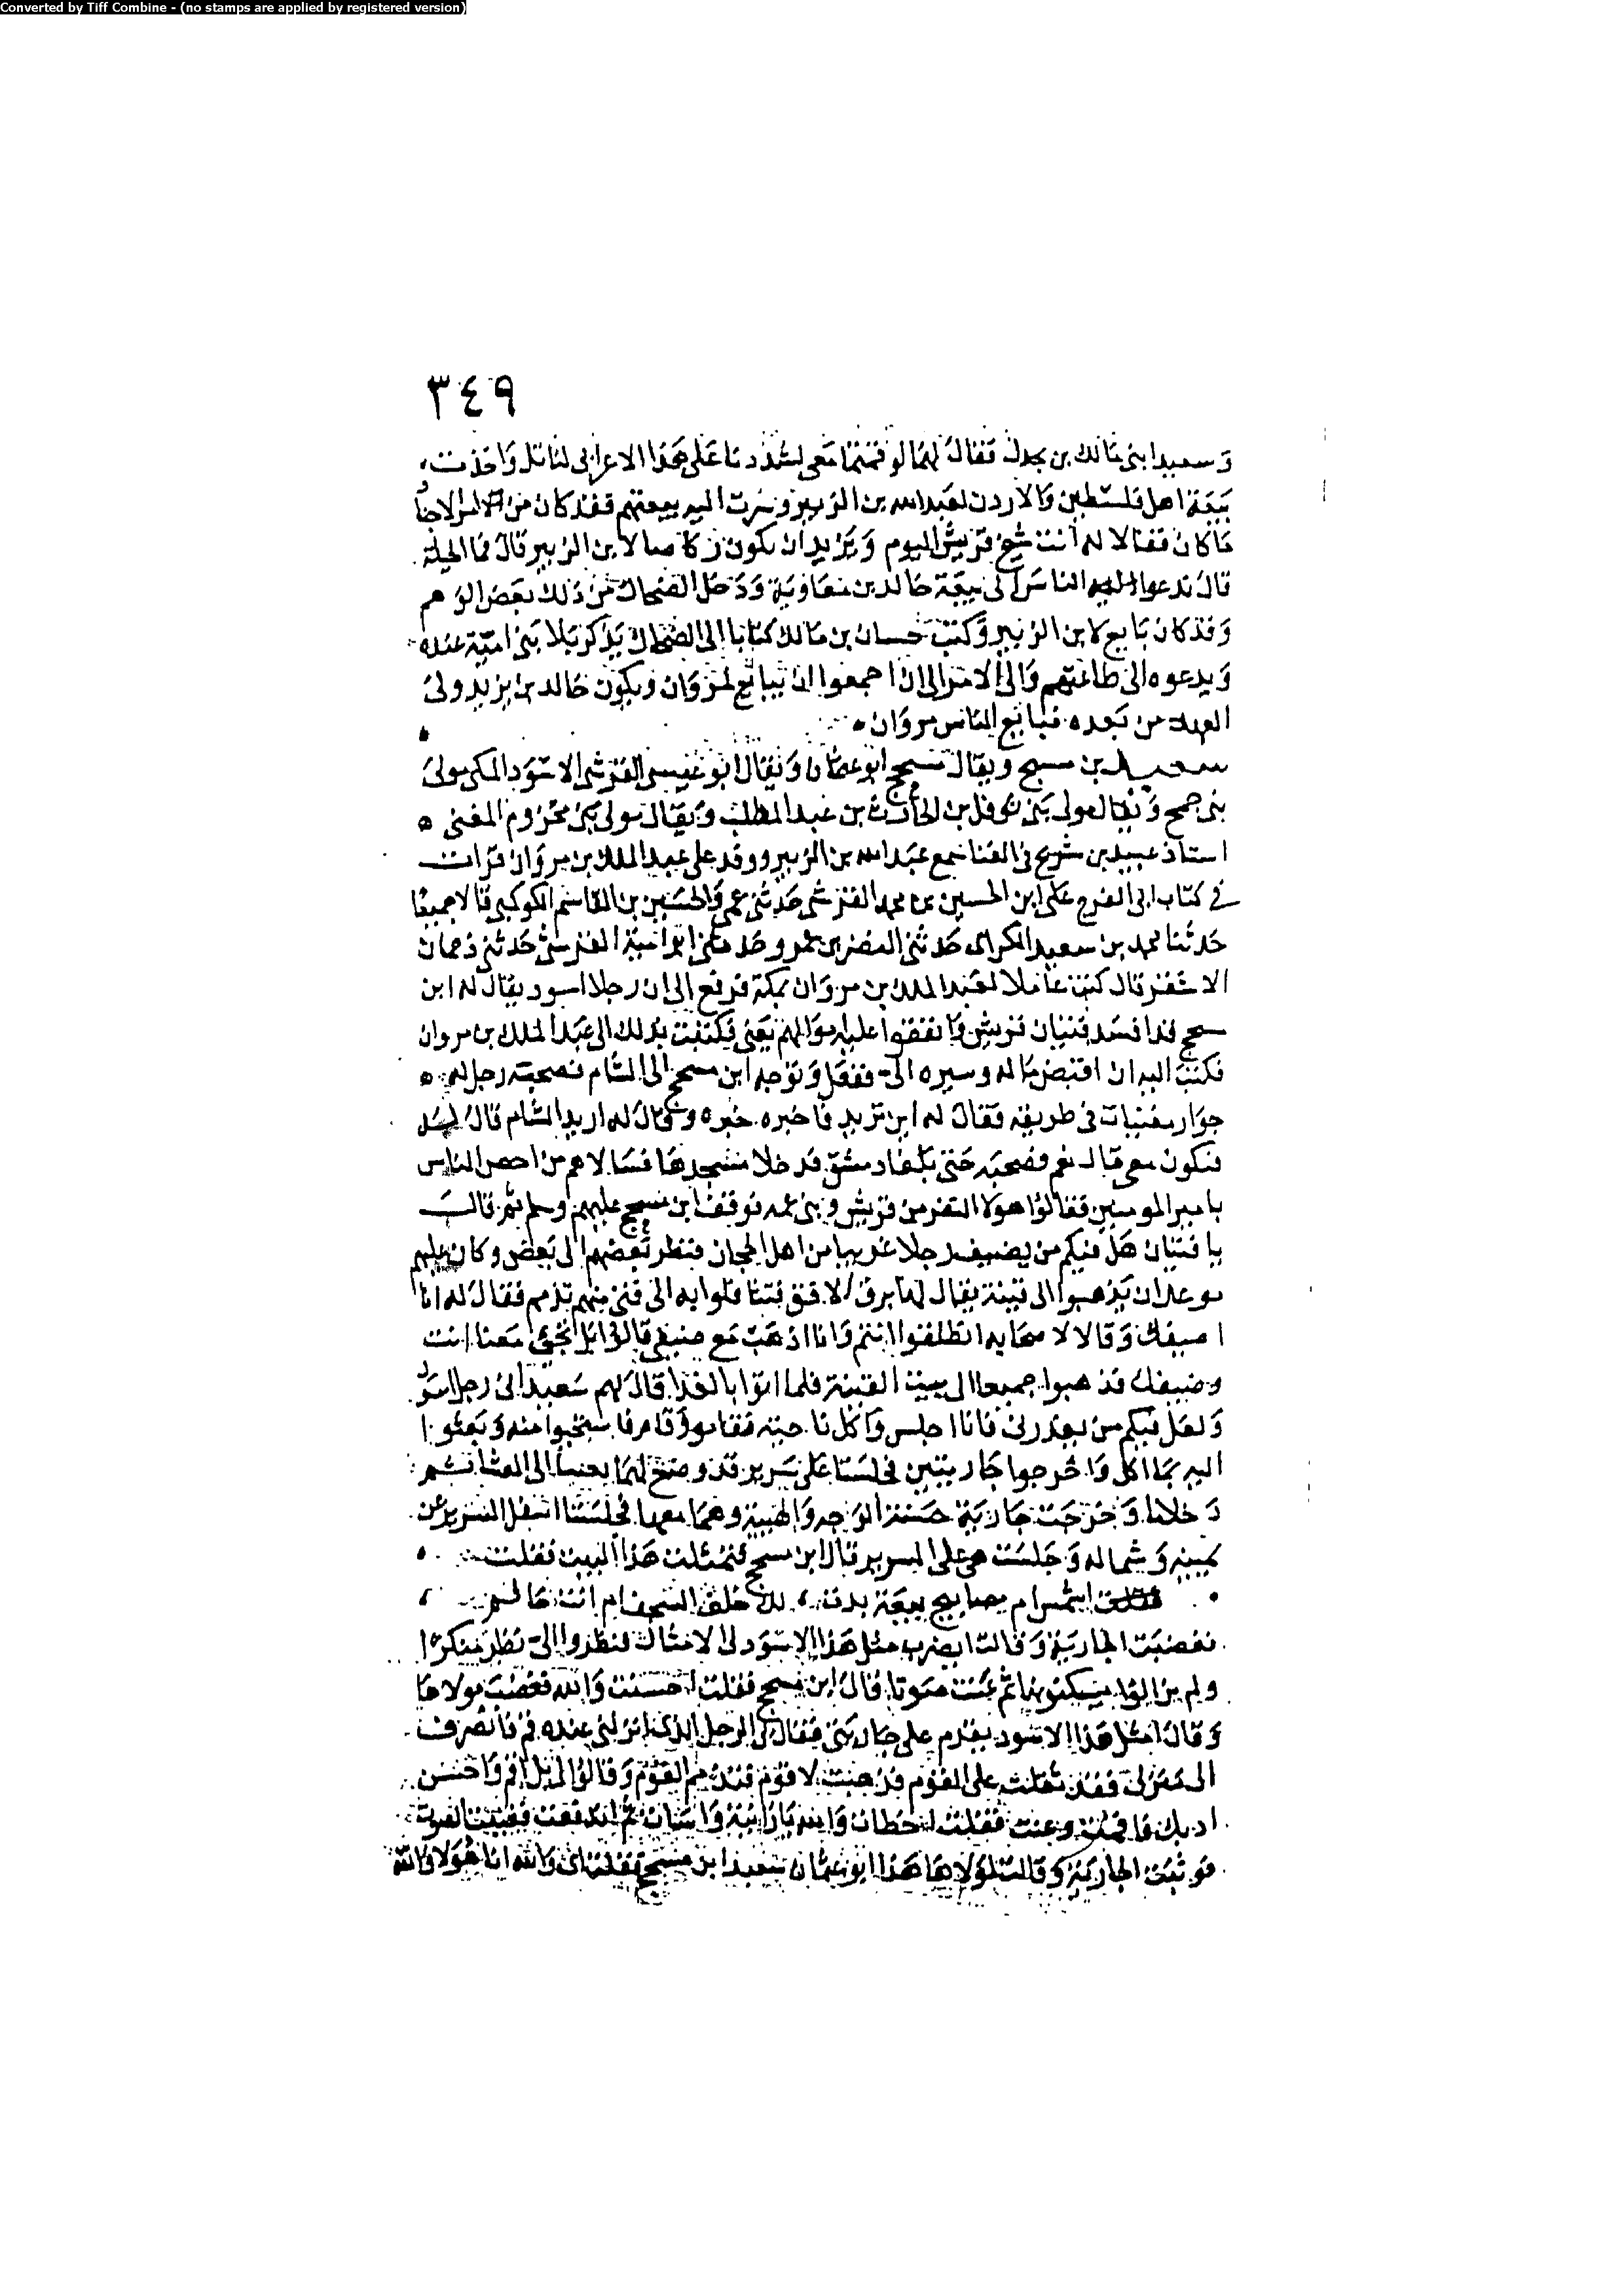 Converted by Tiff Combine - (no stamps are applied by registered version)
٣٤٩
وسعيدا ابنى مالك بن بحدل فقال لهما لو قمتما معى لشددنا على هذا الاعرابى لناتل واخذت
بيعة اهل فلسطين والاردن لعبد الله بن الزبير وسرت اليه ببيعتهم فقد كان من الامر
ما كان فقالا له انت شيخ قريش اليوم وتريد ان تكون لابن الزبير قال فما الحيلة
قال تدعوا الناس الى بيعة خالد بن معاوية ودخل الضحاك من ذلك بعض الوهم
وقد كان بايع لابن الزبير وكتب حسان بن مالك كتابا الى الضحاك يذكر بلا بنى امية عنده
ويدعوه الى طاعتهم والى الامر الى ان اجمعوا ان تبايع لمروان ويكون خالد بن يزيد ولى
العهد من بعده فبايع الناس مروان
سعيد بن مسجح ويقال مسجح ابو عثمان ويقال ابو عيسى القرشى الاسود المكى مولى
بنى جمح ويقال مولى بنى نوفل بن الحارث بن عبد المطلب ويقال مولى بنى مخزوم المغنى
استاذ عبيد بن سريج فى الغنا سمع عبد الله بن الزبير ووفد على عبد الملك بن مروان قرات
فى كتاب ابى الفرج على ابن الحسين بن محمد القرشى حدثنى عمى والحسين بن القاسم الكوكبى قالا جميعا
حدثنا محمد بن سعيد الكرانى حدثنى النضر بن عمرو حدثنى ابو امية القرشى حدثنى دحمان
الاشقر قال كنت عاملا لعبد الملك بن مروان بمكة فرفع الى ان رجلا اسود يقال له ابن
مسجح قد افسد فتيان قريش وانفقوا عليه موالهم يعنى فكتبت بذلك الى عبد الملك بن مروان
فكتب اليه ان اقبض ماله وسيره الى ففعل وتوجه ابن مسجح الى الشام فصحبه رجل له
جوار مغنيات فى طريقه فقال له اين تريد فاخبره خبره وقال له اريد الشام قال له
فتكون معى قال نعم فصحبه حتى بلغا دمشق فدخلا مسجدها فسالا هم من اخص الناس
بامير المومنين فقالوا هولا النفر من قريش وبنى عمه فوقف ابن مسجح عليهم وسلم ثم قال
يا فتيان هل فيكم من يضيف رجلا غريبا من اهل الحجاز فنظر بعضهم الى بعض وكان عليهم
موعد ان يذهبوا الى قينة يقال لها برق الافق فتثاقلوا به الا فتى منهم تذمم فقال له انا
اضيفك وقال لاصحابه انطلقوا انتم وانا اذهب مع ضيفى قالوا بل تجئ معنا انت
وضيفك فذهبوا جميعا الى بيت القينة فلما اتوا بالغدا قال لهم سعيد انى رجل اسود
ولعل فيكم من يقذرنى فانا اجلس واكل ناحية فقام وقام فاستحيوا منه وبعثوا
اليه بما اكل واخرجوا جاريتين فجلستا على سرير قد وضع لهما الى العشا ثم
دخلتا وخرجت جارية حسنة الوجه والهيبة وهما معها فجلستا اسفل السرير عن
يمينه وشماله وجلست هى على السرير قال ابن مسجح فتمثلت هذا البيت فقلت
فقلت اشمس ام مصابيح بيعة بدت لك خلف السجف ام انت حالم
فغضبت الجارية وقالت ايضرب مثل هذا الاسود لى الامثال فنظروا الى نظرا منكرا
ولم يزالوا يسكنونها ثم غنت صوتا قال ابن مسجح فقلت احسنت والله فغضب مولاها
وقال امثل هذا الاسود يقدم على جاريتى فقال لى الرجل الذى انزلنى عنده قم فانصرف
الى منزلى فقد ثقلت على القوم فذهبت لاقوم فتذمم القوم وقالوا لى بل اقم واحسن
ادبك فاقمت وغنت فقلت اخطات والله يا زانية واسات ثم اندفعت فغنيت الصوت
فوثبت الجارية وقالت لمولاها هذا ابو عثمان سعيد ابن مسجح فقلت اى والله انا هو لا والله